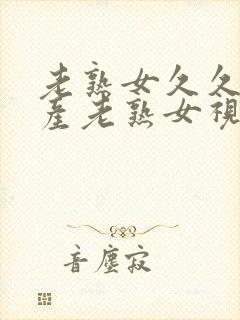 老熟女久久
産老熟女視
音塵寂